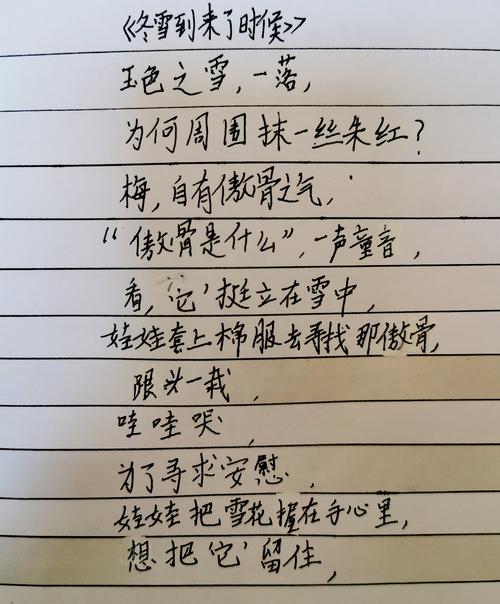 《冬雪到来了时候》
玉色之雪，一落，
为何周围抹一丝朱红？
梅，自有傲骨之气，
“傲骨是什么”，一声童音，
看，‘它’挺立在雪中，
娃娃套上棉服去寻找那傲骨，
跟头一栽，
哇哇哭，
为了寻求安慰，
娃娃把雪花握在手心里，
想把‘它’留住，